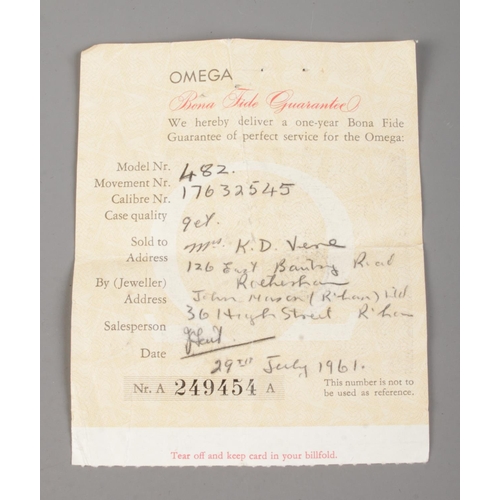 OMEGA
Bona Fide Guarantee
We hereby deliver a one-year Bona Fide
Guarantee of perfect service for the Omega:
Model Nr. 482.
Movement Nr. 17632545
Calibre Nr.
Case quality 9ct.
Sold to Mrs K. D. Vere
Address 126 East Bawtry Road
Rotherham
By (Jeweller) John Mason (R'ham) Ltd
Address 36 High Street R'ham
Salesperson
Date 29th July 1961.
Nr. A 249454 A
This number is not to
be used as reference.
Tear off and keep card in your billfold.